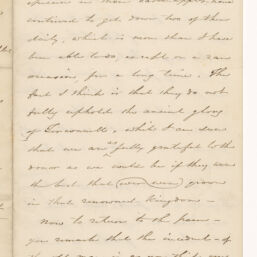 continued to get down two of them
daily, which is more than I have
been able to do, except on a rare
occasion, for a long time. The
fact I think is that they do not
fully uphold the ancient glory
of, whilst I am sure
that we are as fully grateful to the
donor as we could be if they were
the best that (ever were) grown
in that renowned kingdom -
Now to return to the
you remark that this incident - of